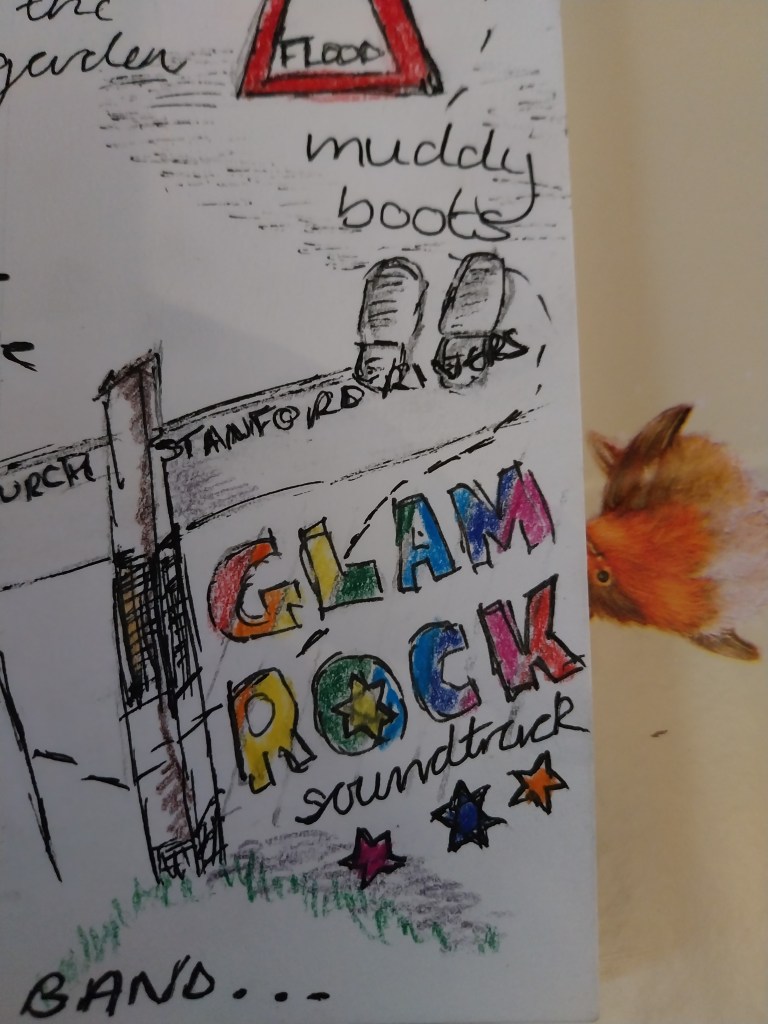 the
garden
FLOOD
muddy
boots
URCH
STANFORD RIVERS
GLAM
ROCK
soundtrack
BAND...